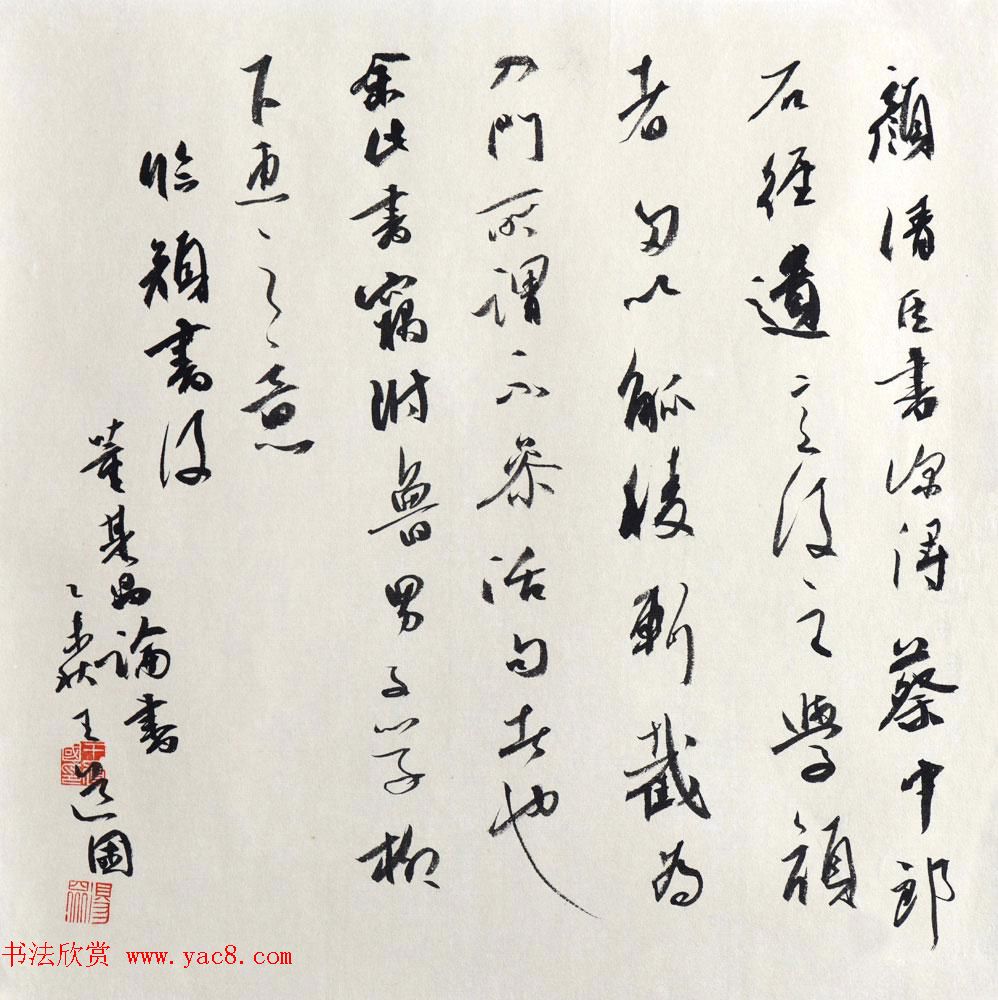 顏清臣書深得蔡中郎
石經遺意後之學顏
者每以觚稜斬截為
入門所謂不參活句者也
余此書竊附魯男子學柳
下惠之意
臨顏書後
董其昌論書
乙未秋王國
书法欣赏 www.yac8.com